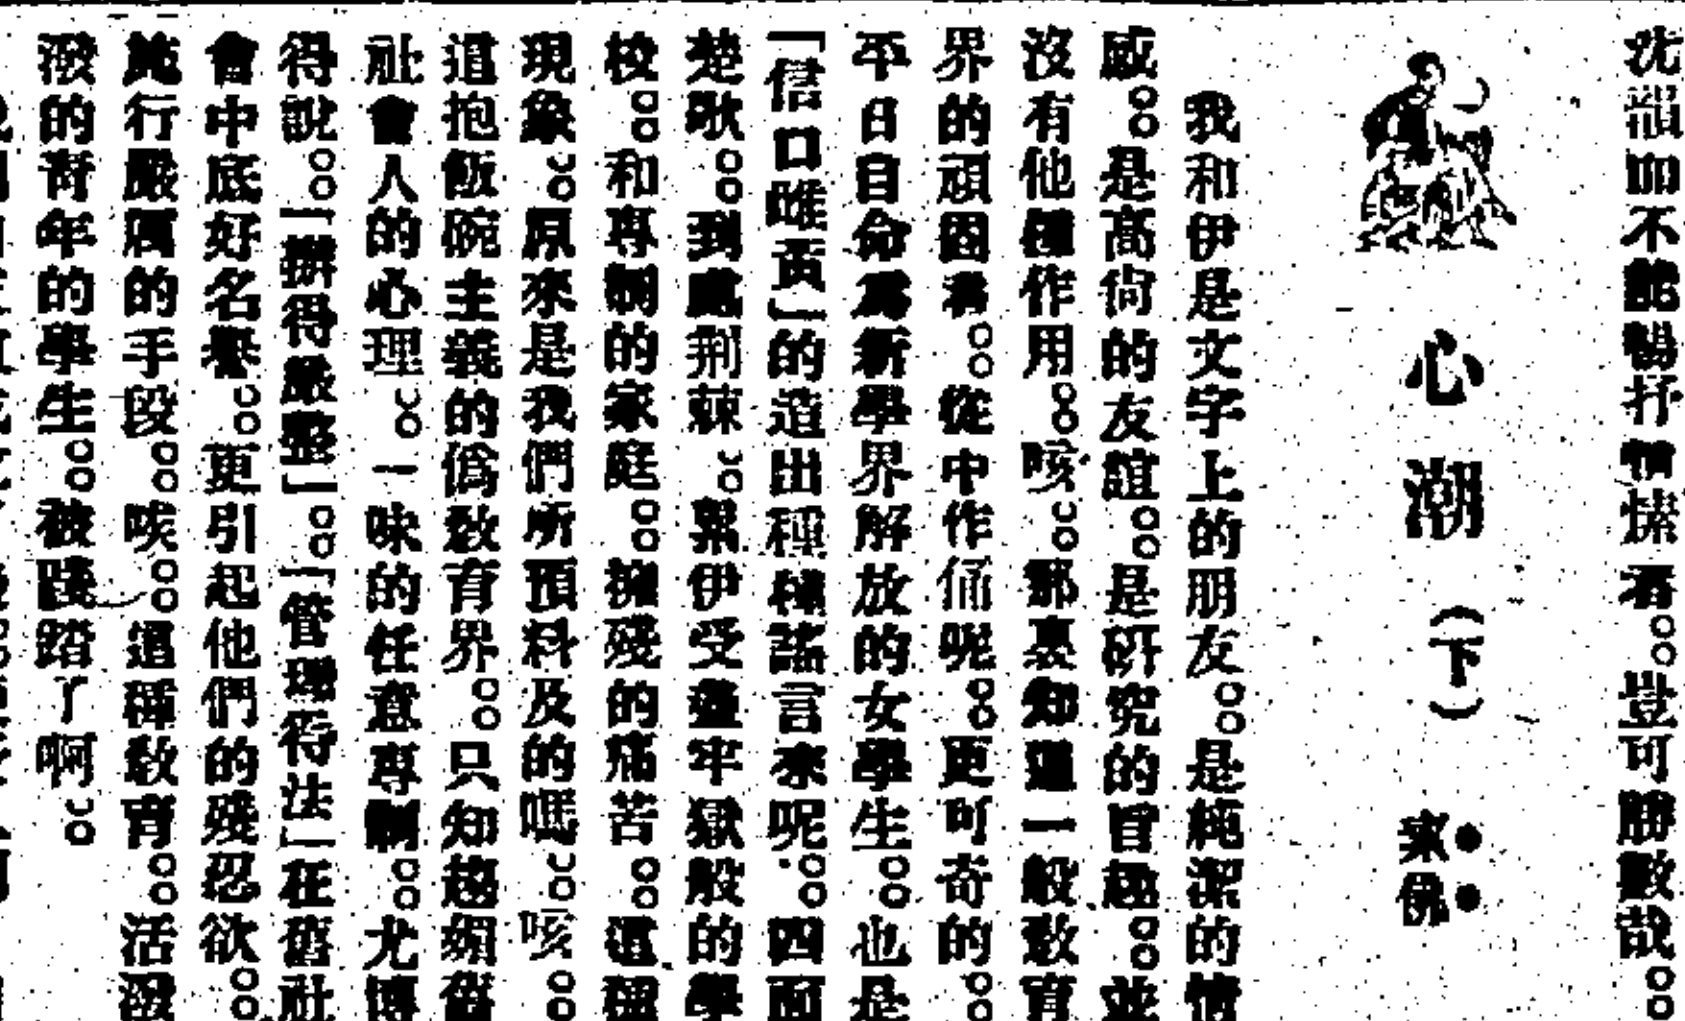 沈韻 不能暢抒情愫者。豈可勝數哉。
心潮（下）
寀佛
我和伊是文字上的朋友。是純潔的情
感。是高尚的友誼。是研究的旨趣。並
沒有他種作用。咳。那裏知道一般敎育
界的頑固者。從中作俑呢。更可奇的。
平日自命爲新學界解放的女學生。也是
「信口雌黃」的造出種種謠言來呢。四面
楚歌。到處荆棘。累伊受盡牢獄般的學
校。和專制的家庭。摧殘的痛苦。這種
現象。原來是我們所預料及的嗎。咳。
道抱飯碗主義的僞敎育界。只知趨媚舊
社會人的心理。一味的任意專制。尤博
得說。「辦得嚴整」。「管理得法」在舊社
會中底好名譽。更引起他們的殘忍欲。
施行嚴厲的手段。唉。這種敎育。活潑
潑的靑年的學生。被踐踏了啊。